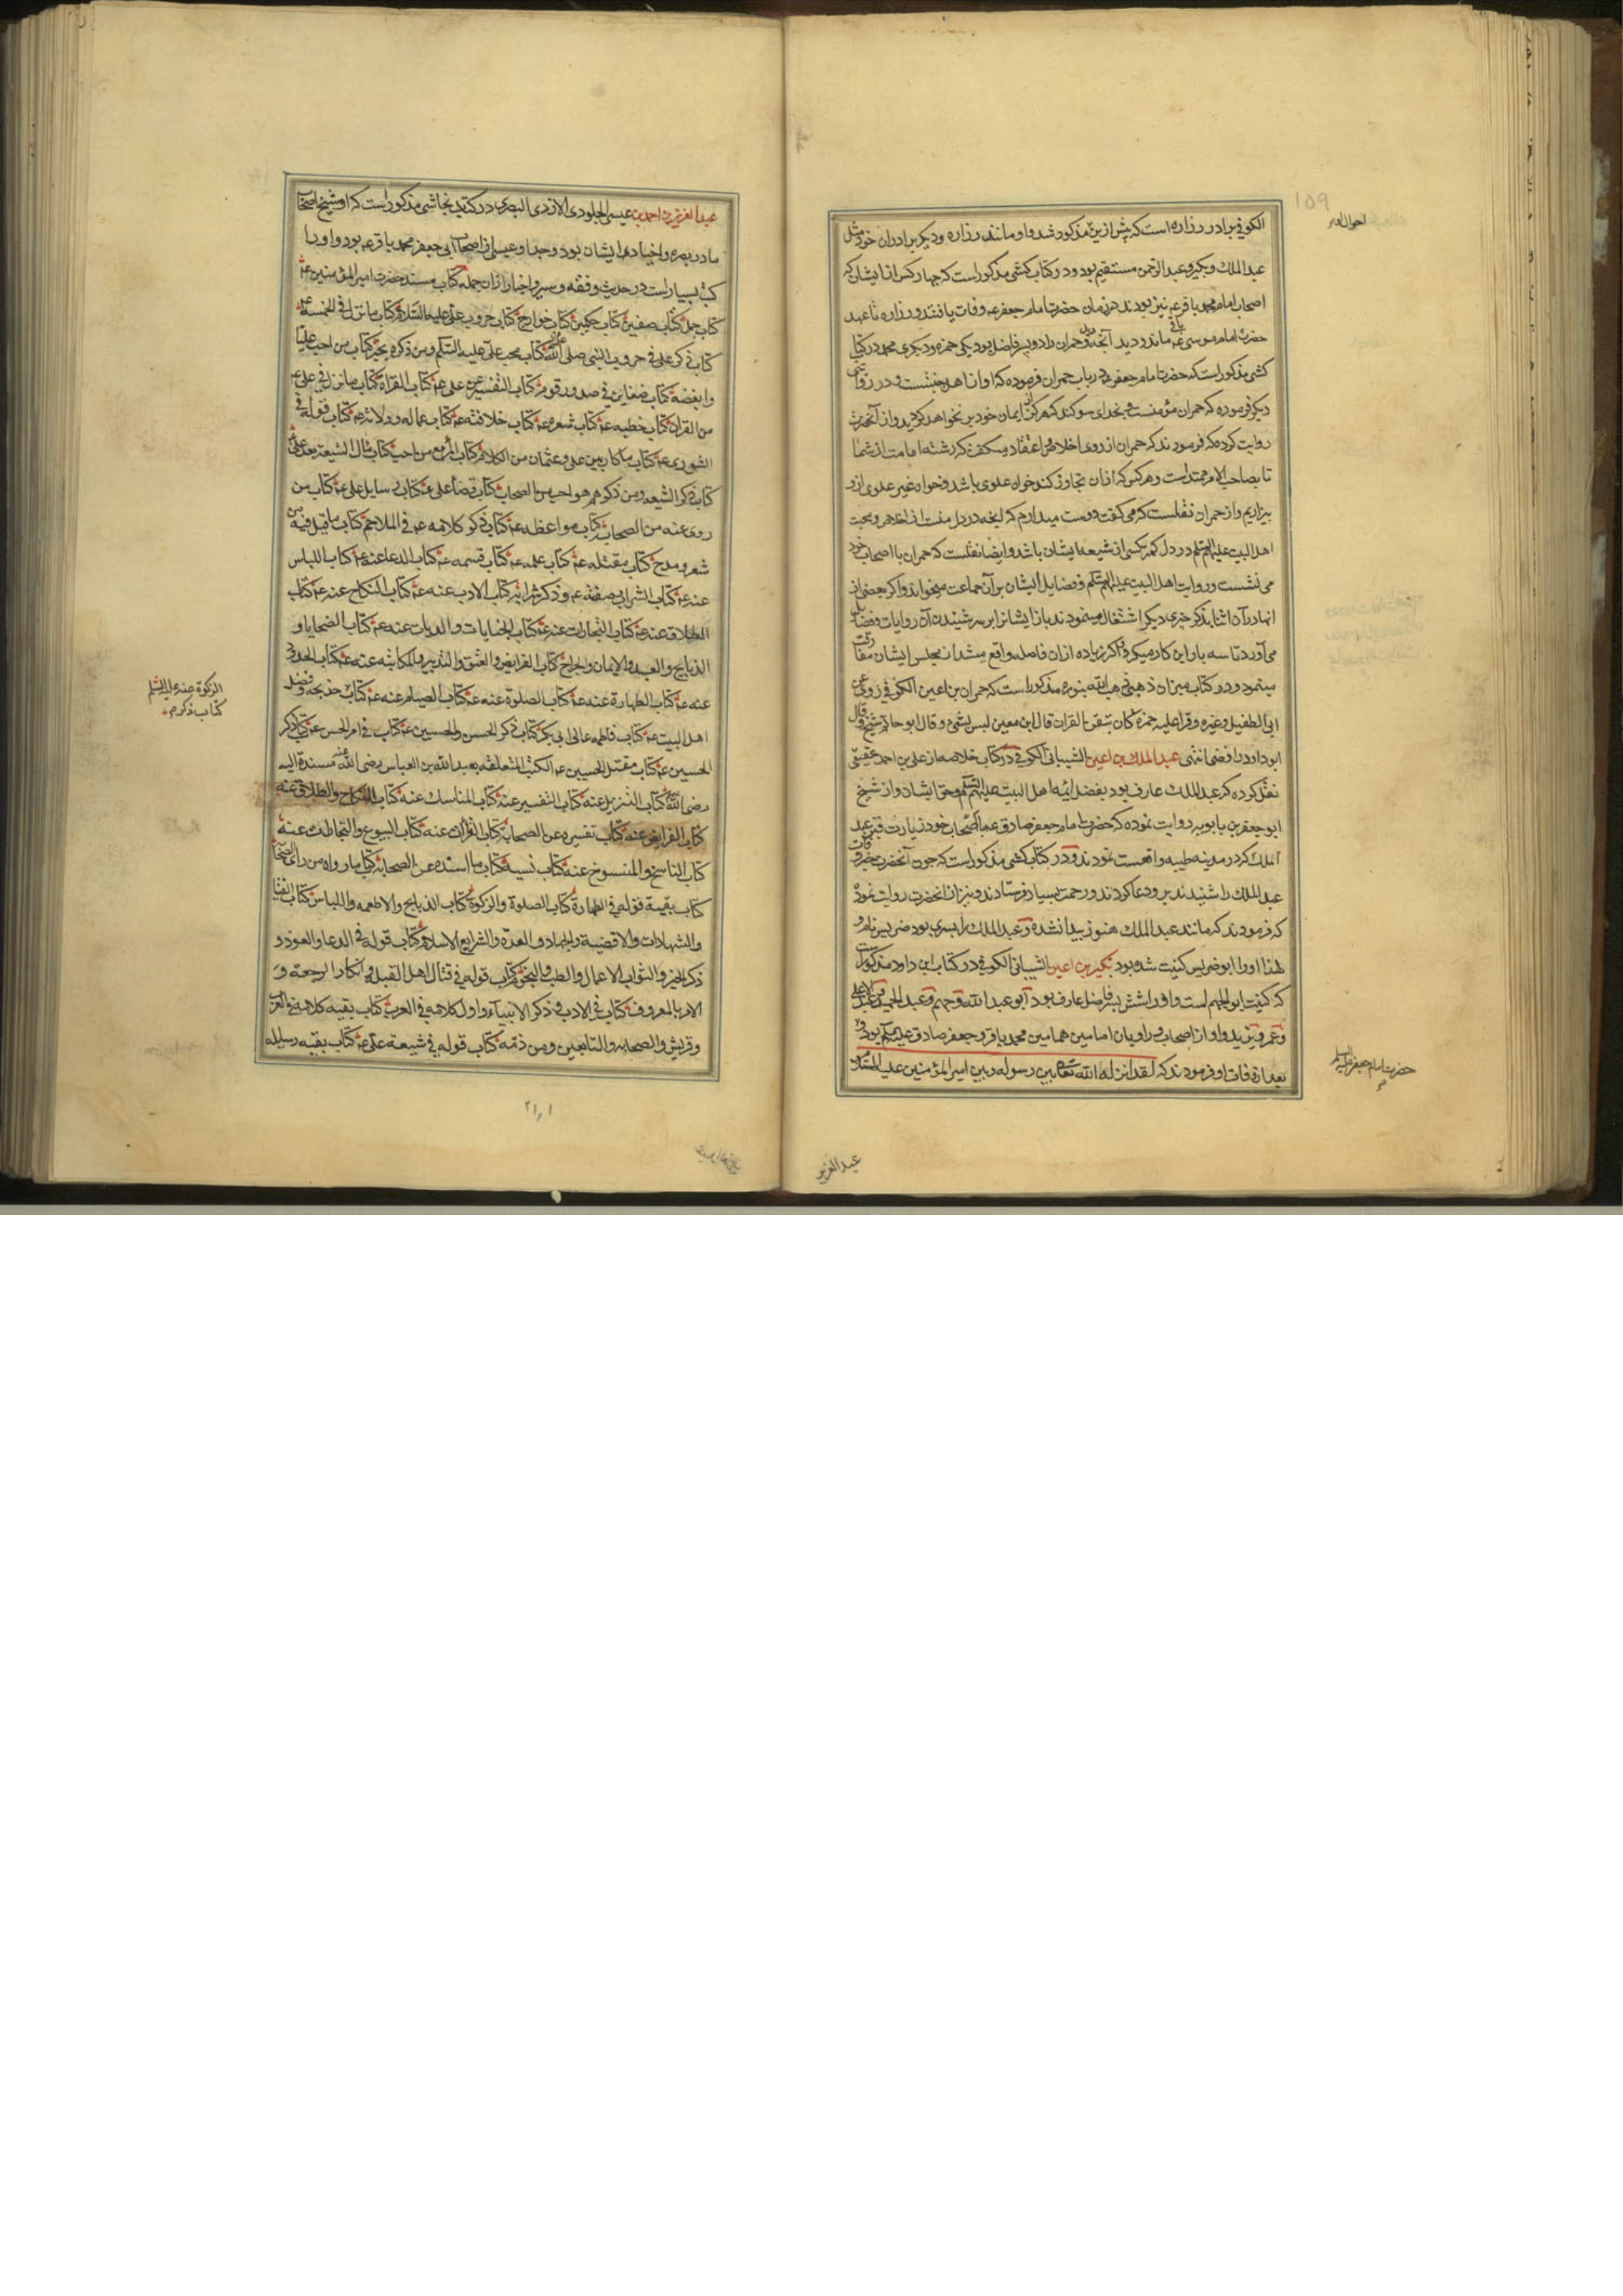 ۱۵۹
احوال
الکوفی برادر زراره است که پیش ازین مذکور شد و او مانند زراره و دیگر برادران خود مثل
عبد الملک و بکیر و عبد الرحمن مستقیم بود و در کتاب کشی مذکور است که چهار کس از ایشان که
اصحاب امام محمد باقر ع نیز بودند در زمان حضرت امام جعفر ع وفات یافتند و زراره تا عهد
حضرت امام موسی ع باقی ماند و دید آنچه دید و حمران را دو پسر فاضل بود یکی حمزه و دیگری محمد در کتاب
کشی مذکور است که حضرت امام جعفر ع در باب حمران فرموده که او از اهل جنتست و در روایتی
دیگر فرموده که حمران مؤمنست و بخدای سوکند که هرکز از ایمان خود بر نخواهد کردید و از آنحضرت
روایت کرده که فرمودند که حمران از روی اخلاص و اعتقاد میکفت که رشته امامت از شما
تا بصاحب الامر ممتد است و هر کس که از ان تجاوز کند خواه علوی باشد و خواه غیر علوی از و
بیزاریم و از حمران نقلست که می کفت دوست میدارم که انچه در دل منست از اخلاص و محبت
اهل البیت علیهم السلم در دل کمتر کسی از شیعه ایشان باشد و ایضا نقلست که حمران با اصحاب خود
می نشست و روایت اهل البیت علیهم السلم و فضایل ایشان بر آن جماعت میخواند و اکر بعضی از
انها در آن اثنا بذکر خبری دیکر اشتغال مینمودند باز ایشانرا بر سر شنیدن آن روایات و فضایل
می آورد تا سه بار این کار میکرد و اکر زیاده از ان فاصله واقع میشد از مجلس ایشان مفارقت
مینمود و در کتاب میزان ذهبی مذکور است که حمران بن اعین الکوفی روی عن
ابی الطفیل و غیره و قرا علیه حمزه کان یتقن القران قال ابن معین لیس بشیء و قال ابو حاتم شیخ و قال
ابو داود رافضی انتهی عبد الملک بن اعین الشیبانی الکوفی در کتاب خلاصه از علی بن احمد عقیقی
نقل کرده که عبد الملک عارف بود بفضل ائمه اهل البیت علیهم السلم و حق ایشان و از شیخ
ابو جعفر بن بابویه روایت نموده که حضرت امام جعفر صادق ع با اصحاب خود زیارت قبر عبد
الملک که در مدینه طیبه واقعست نمودند و در کتاب کشی مذکور است که چون آنحضرت خبر وفات
عبد الملک را شنیدند برو دعا کردند و رحمت بسیار فرستادند و نیز از انحضرت روایت نموده
که فرمودند که مانند عبد الملک هنوز پیدا نشده و عبد الملک را پسری بود ضریس نام و
لهذا او را ابو ضریس کنیت شده بود بکیر بن اعین الشیبانی الکوفی در کتاب ابن داود مذکور است
که کنیت ابو الجهم است و او را شش پسر فاضل عارف بود ابو عبد الله و جهم و عبد الحمید و عبد الاعلی
و عمر و یزید و او از اصحاب و راویان امامین همامین محمد باقر و جعفر صادق علیهم السلم بود و
بعد از وفات او فرمودند که لقد انزله الله تعالی بین رسوله و بین امیر المؤمنین علیه السلم
حضرت امام جعفر علیه السلم
عبد العزیز
عبد العزیز بن احمد بن عیسی الجلودی الازدی البصری در کتاب نجاشی مذکور است که او شیخ اصحاب
ما در بصره و اخباری ایشان بود و جد او عیسی از اصحاب ابی جعفر محمد باقر ع بود و او را
کتب بسیار است در حدیث و فقه و سیر و اخبار از ان جمله کتاب مسند حضرت امیر المؤمنین ع
کتاب جمل کتاب صفین کتاب حکمین کتاب خوارج کتاب حروب علی علیه السلم کتاب ما نزل فی الخمسه ع
کتاب ذکر علی فی حروب النبی صلی الله کتاب محب علی علیه السلم و من ذکره بخیر کتاب من احب علیا
و ابغضه کتاب ضغاین فی صدور قوم کتاب التفسیر عن علی ع کتاب القراة کتاب ما نزل فی علی ع
من القران کتاب خطبه ع کتاب شعره ع کتاب خلافته ع کتاب عماله و ولاته ع کتاب قوله فی
الشوری ع کتاب ما کان بین علی و عثمان من الکلام کتاب المرء مع من احب کتاب مآل الشیعه بعد علی
کتاب ذکر الشیعه و من ذکرهم هو او من احب من الصحابة کتاب قضاء علی ع کتاب رسایل علی ع کتاب من
روی عنه من الصحابة کتاب مواعظه ع کتاب ذکر کلامه ع فی الملاحم کتاب ما قیل فیه من
شعر و مدح کتاب مقتله ع کتاب علمه ع کتاب قسمه ع کتاب الدعا عنه ع کتاب اللباس
عنه ع کتاب الشراب و صفته ع و ذکر شرابه کتاب الادب عنه ع کتاب النکاح عنه ع کتاب
الطلاق عنه ع کتاب التجارات عنه ع کتاب الجنایات و الدیات عنه ع کتاب الضحایا و
الذبایح و الصید و الایمان و الخراج کتاب الفرایض و العتق و التدبیر و المکاتبه عنه ع کتاب الحدود
عنه ع کتاب الطهارة عنه ع کتاب الصلوة عنه ع کتاب الصیام عنه ع کتاب خدیجه و فضل
الزکوة عنه علیه السلم
کتاب ذکره
اهل البیت ع کتاب فاطمه ع ابی بکر کتاب ذکر الحسن و الحسین ع کتاب فی امر الحسن ع کتاب ذکر
الحسین ع کتاب مقتل الحسین ع الکتب المتعلقه بعبد الله بن العباس رضی الله عنه مسنده
رضی الله کتاب التنزیل عنه کتاب التفسیر عنه کتاب المناسک عنه کتاب النکاح و الطلاق عنه
کتاب الفرایض عنه کتاب تفسیره عن الصحابة کتاب القرآن عنه کتاب البیوع و التجارات عنه
کتاب الناسخ و المنسوخ عنه کتاب نسبه کتاب ما اسنده عن الصحابة کتاب ما رواه من رای الصحابة
کتاب بقیة قوله فی الطهارة کتاب الصلوة و الزکوة کتاب الذبایح و الاطعمه و اللباس کتاب الفتیا
و الشهادات و الاقضیه و الجهاد و العدة و الشرایع الاسلام کتاب قوله فی الدعا و العوذ و
ذکر الخیر و الثواب الاعمال و الطب و النجوم کتاب قوله فی قتال اهل القبله و انکار الرجعة و
الامر بالمعروف کتاب فی الادب و ذکر الانبیاء و اول کلامه فی العرب کتاب بقیه کلامه فی العرب
و قریش و الصحابه و التابعین و من ذمه کتاب قوله فی شیعة علی ع کتاب بقیه رسایله